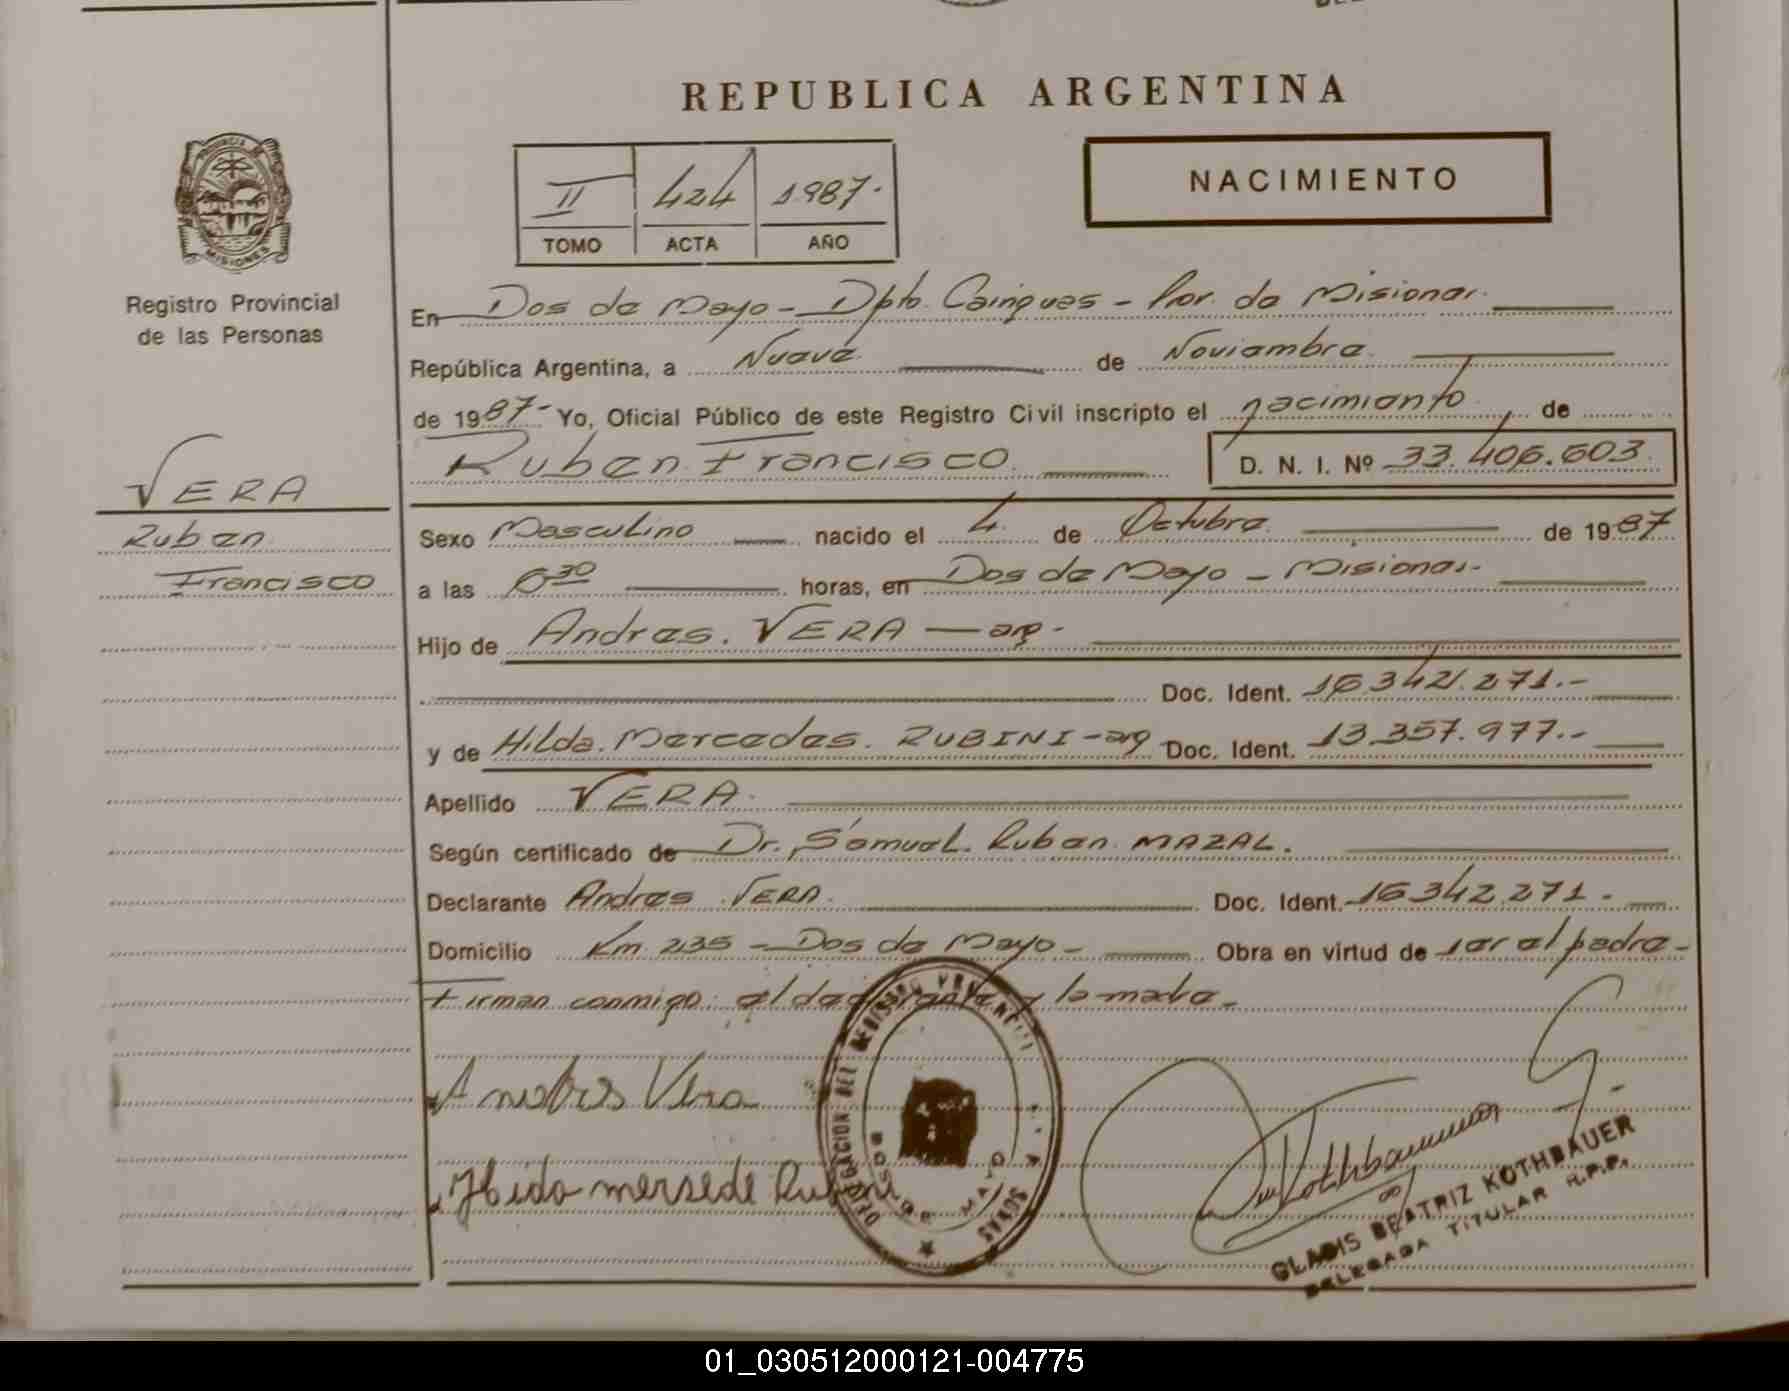 REPUBLICA ARGENTINA
PROVINCIA DE
MISIONES
Registro Provincial
de las Personas
II 424 1987-
TOMO ACTA AÑO
NACIMIENTO
En Dos de Mayo - Dpto. Cainguas - Prov. de Misiones.
República Argentina, a Nueve de Noviembre
de 1987- Yo, Oficial Público de este Registro Civil inscripto el nacimiento de
Ruben Francisco D. N. I. Nº 33.406.603
VERA
Ruben
Francisco
Sexo Masculino nacido el 4 de Octubre de 1987
a las 6 30 horas, en Dos de Mayo - Misiones.
Hijo de Andres. VERA — arg.
Doc. Ident. 16.342.271.-
y de Hilda. Mercedes. RUBINI - arg Doc. Ident. 13.357.977.-
Apellido VERA.
Según certificado de Dr. Samuel. Ruben. MAZAL.
Declarante Andres VERA. Doc. Ident. 16.342.271.-
Domicilio Km 235 - Dos de Mayo - Obra en virtud de ser el padre-
Firman conmigo: el declarante y la madre-
Andres Vera
Hilda mersede Rubini
DELEGACION DEL REGISTRO PROVINCIAL
DOS DE MAYO
Kothbauer
GLADIS BEATRIZ KOTHBAUER
DELEGADA TITULAR R.P.P.
01_030512000121-004775